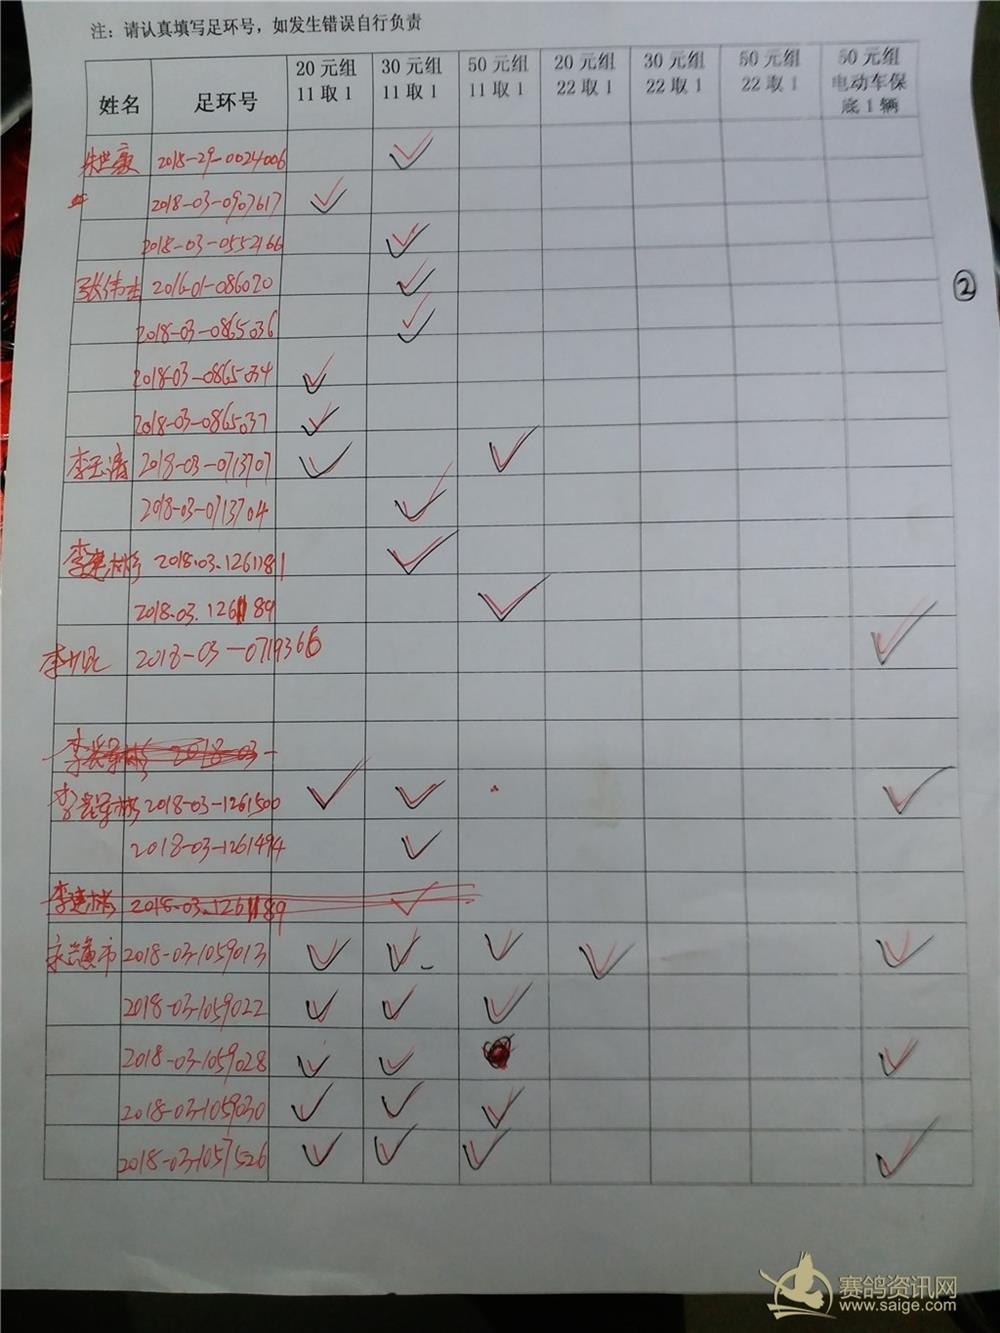 注：请认真填写足环号，如发生错误自行负责
姓名 足环号 20元组 11取1 30元组 11取1 50元组 11取1 20元组 22取1 30元组 22取1 50元组 22取1 50元组 电动车保底1辆
2018-29-0024006 ✓
2018-03-0907617 ✓
2018-03-0552166 ✓
张伟 2016-01-086020 ✓
2018-03-0865036 ✓
2018-03-0865034 ✓
2018-03-0865037 ✓
李玉涛 2018-03-0713707 ✓ ✓
2018-03-0713704 ✓
李建彬 2018.03.1261181 ✓
2018.03.1261189 ✓
李 2018-03-0719366 ✓
2018-03-
李 2018-03-1261500 ✓ ✓ ✓
2018-03-1261494 ✓
李建彬 2018.03.1261189 ✓
2018-03-1059013 ✓ ✓ ✓ ✓ ✓
2018-03-1059022 ✓ ✓ ✓
2018-03-1059028 ✓ ✓ ✓
2018-03-1059030 ✓ ✓ ✓
2018-03-1057526 ✓ ✓ ✓ ✓
②
赛鸽资讯网
www.saige.com